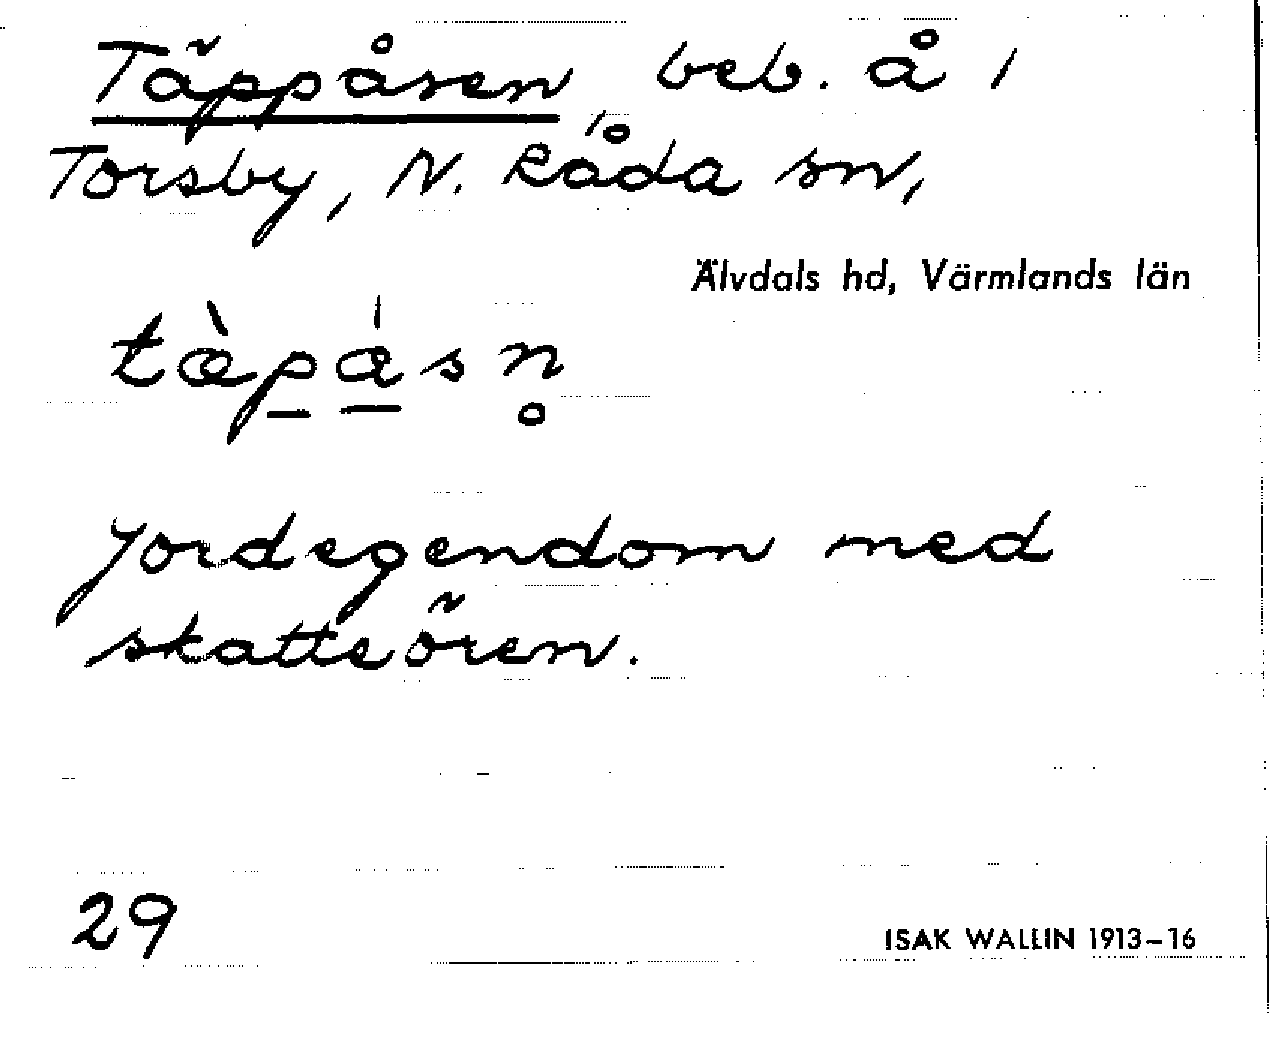 Täppåsen, beb. å 1
Torsby, N. Råda sn,
Älvdals hd, Värmlands län
tæ̀pa̍sn̥
Jordegendom med
skatteören.
29
ISAK WALLIN 1913–16